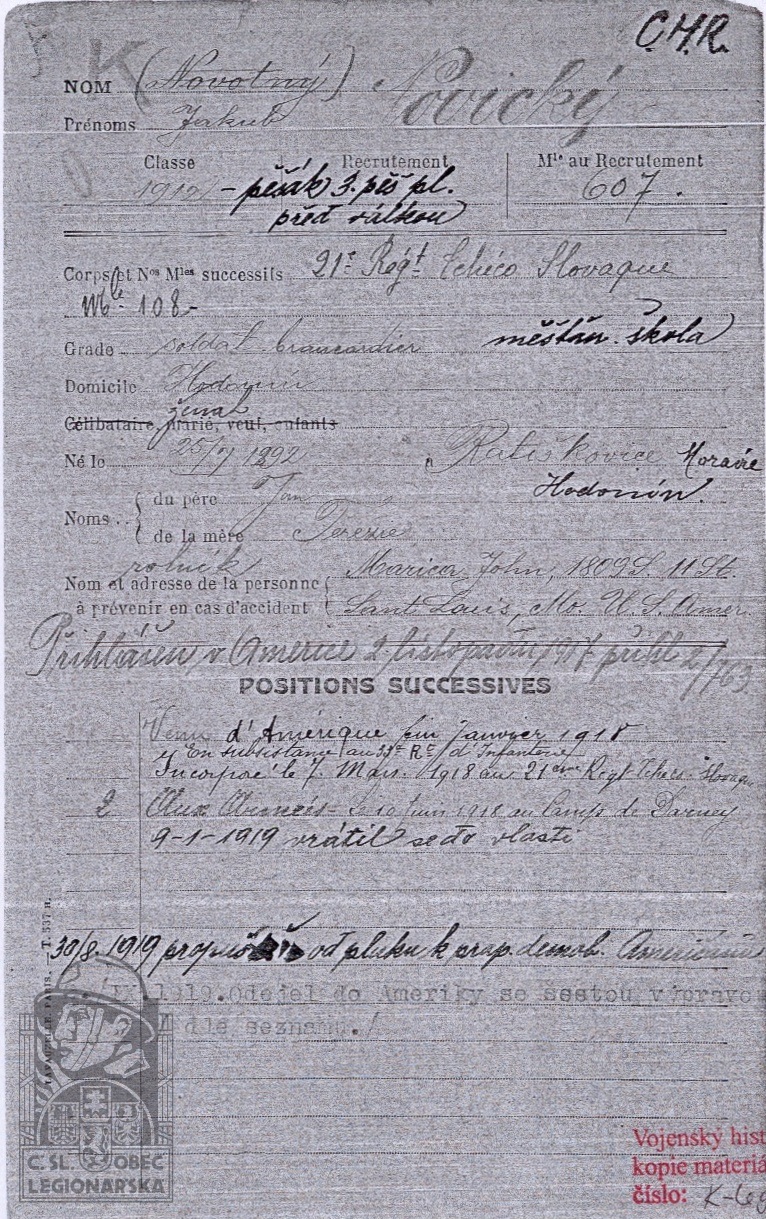 C.H.R.
NOM (Novotný) Novický
Prénoms Jakub
Classe Recrutement Mle au Recrutement
1912 - pěšák 3. pěš pl. 607.
před válkou
Corps et Nos Mles successifs 21e Régt Tchéco Slovaque
Mle 108-
Grade soldat brancardier měšťan. škola
Domicile Hodonín
ženat
Célibataire, marié, veuf, enfants
Né le 25/7 1892 à Ratiškovice Moravie
Hodonín.
Noms du père Jan
de la mère Terezie
rolník
Nom et adresse de la personne John, 1809 S. 11 St.
à prévenir en cas d'accident Saint Louis, Mo. U. S. Amer.
Přihlášen v Americe 2 listopadu 1917 přihl 2/763
POSITIONS SUCCESSIVES
Venu d'Amérique fin Janvier 1918
En subsistance au 33e Rt d'Infanterie
Incorporé le 7 Mars 1918 au 21ème Régt Tchéco-Slovaque
2 Aux Armées - le 10 Juin 1918 au Camp de Darney
9-1-1919 vrátil se do vlasti
30/8. 1919 od pluku k prap. demob. Američanů
IX.1919.Odejel do Ameriky se šestou výpravo
dle seznamu./
PARIS. — T. 537 H.
Č. SL. OBEC
LEGIONÁŘSKÁ
Vojenský hist
kopie materiá
číslo: K-leg